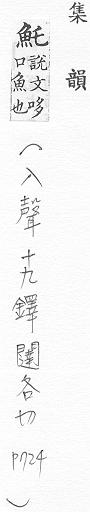 集韻
魠說文哆口魚也(入聲十九鐸闥各切 P724)